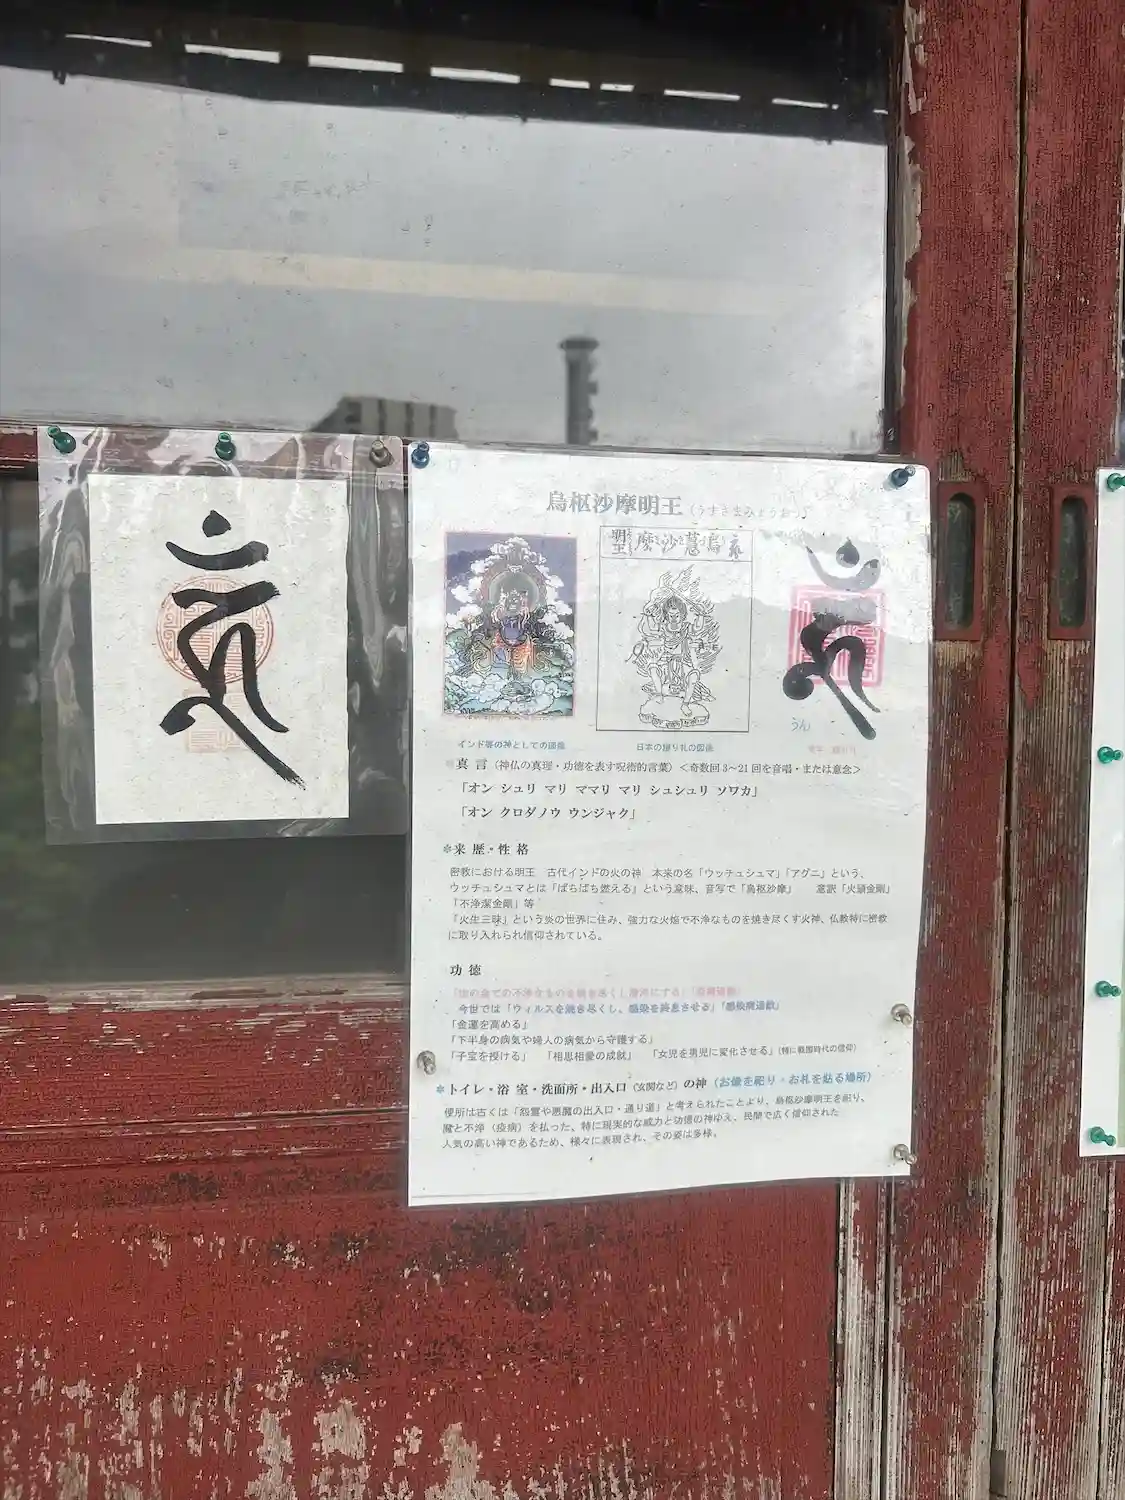 烏枢沙摩明王（うすさまみょうおう）
明王
うん
インド等の神としての図像
日本の護り札の図像
真 言（神仏の真理・功徳を表す呪術的言葉）＜奇数回3〜21回を音唱・または意念＞
「オン シュリ マリ ママリ マリ シュシュリ ソワカ」
「オン クロダノウ ウンジャク」
✽来 歴・性 格
密教における明王　古代インドの火の神　本来の名「ウッチュシュマ」「アグニ」という、
ウッチュシュマとは「ぱちぱち燃える」という意味、音写で「烏枢沙摩」　意訳「火頭金剛」
『不浄潔金剛」等
『火生三昧』という炎の世界に住み、強力な火焔で不浄なものを焼き尽くす火神、仏教特に密教
に取り入れられ信仰されている。
功 徳
「世の全ての不浄なものを焼き尽くし清浄にする」
今世では「ウィルスを焼き尽くし、感染を終息させる」「感染病退散」
「金運を高める」
「下半身の病気や婦人の病気から守護する」
「子宝を授ける」　「相思相愛の成就」　「女児を男児に変化させる」（特に戦国時代の信仰）
✽トイレ・浴 室・洗面所・出入口（玄関など）の神（お像を祀り・お札を貼る場所）
便所は古くは「怨霊や悪魔の出入口・通り道」と考えられたことより、烏枢沙摩明王を祀り、
魔と不浄（疫病）を払った、特に現実的な威力と功徳の神ゆえ、民間で広く信仰された
人気の高い神であるため、様々に表現され、その姿は多様。